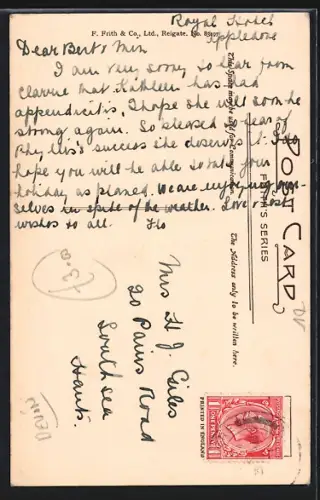 F. Frith & Co., Ltd., Reigate. No.
Royal Hotel
Appledore
Dear Bert & Min
I am very sorry to hear from
Clarrie that Kathleen has had
appendicitis. I hope she will soon be
strong again. So pleased to hear of
Phyllis's success she deserves it. I
hope you will be able to take your
holiday as planed. We are enjoying our
selves in spite of the weather. Love & best
wishes to all. Flo
This Space may be used for Communication.
POST CARD
FRITH'S SERIES
The Address only to be written here.
Mrs H. J. Giles
20 Pains Road
Southsea
Hants.
PRINTED IN ENGLAND
ONE PENNY
£3.00